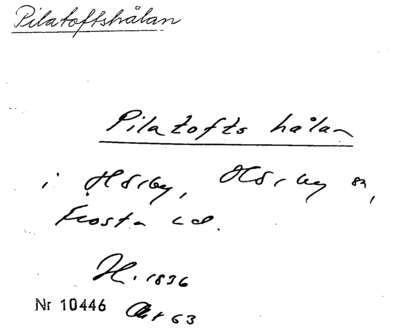 Pilatoftshålan
Pilatofts hålan
i Hörby, Hörby sn,
Frosta hd.
H. 1836
Nr 10446 Akt 63